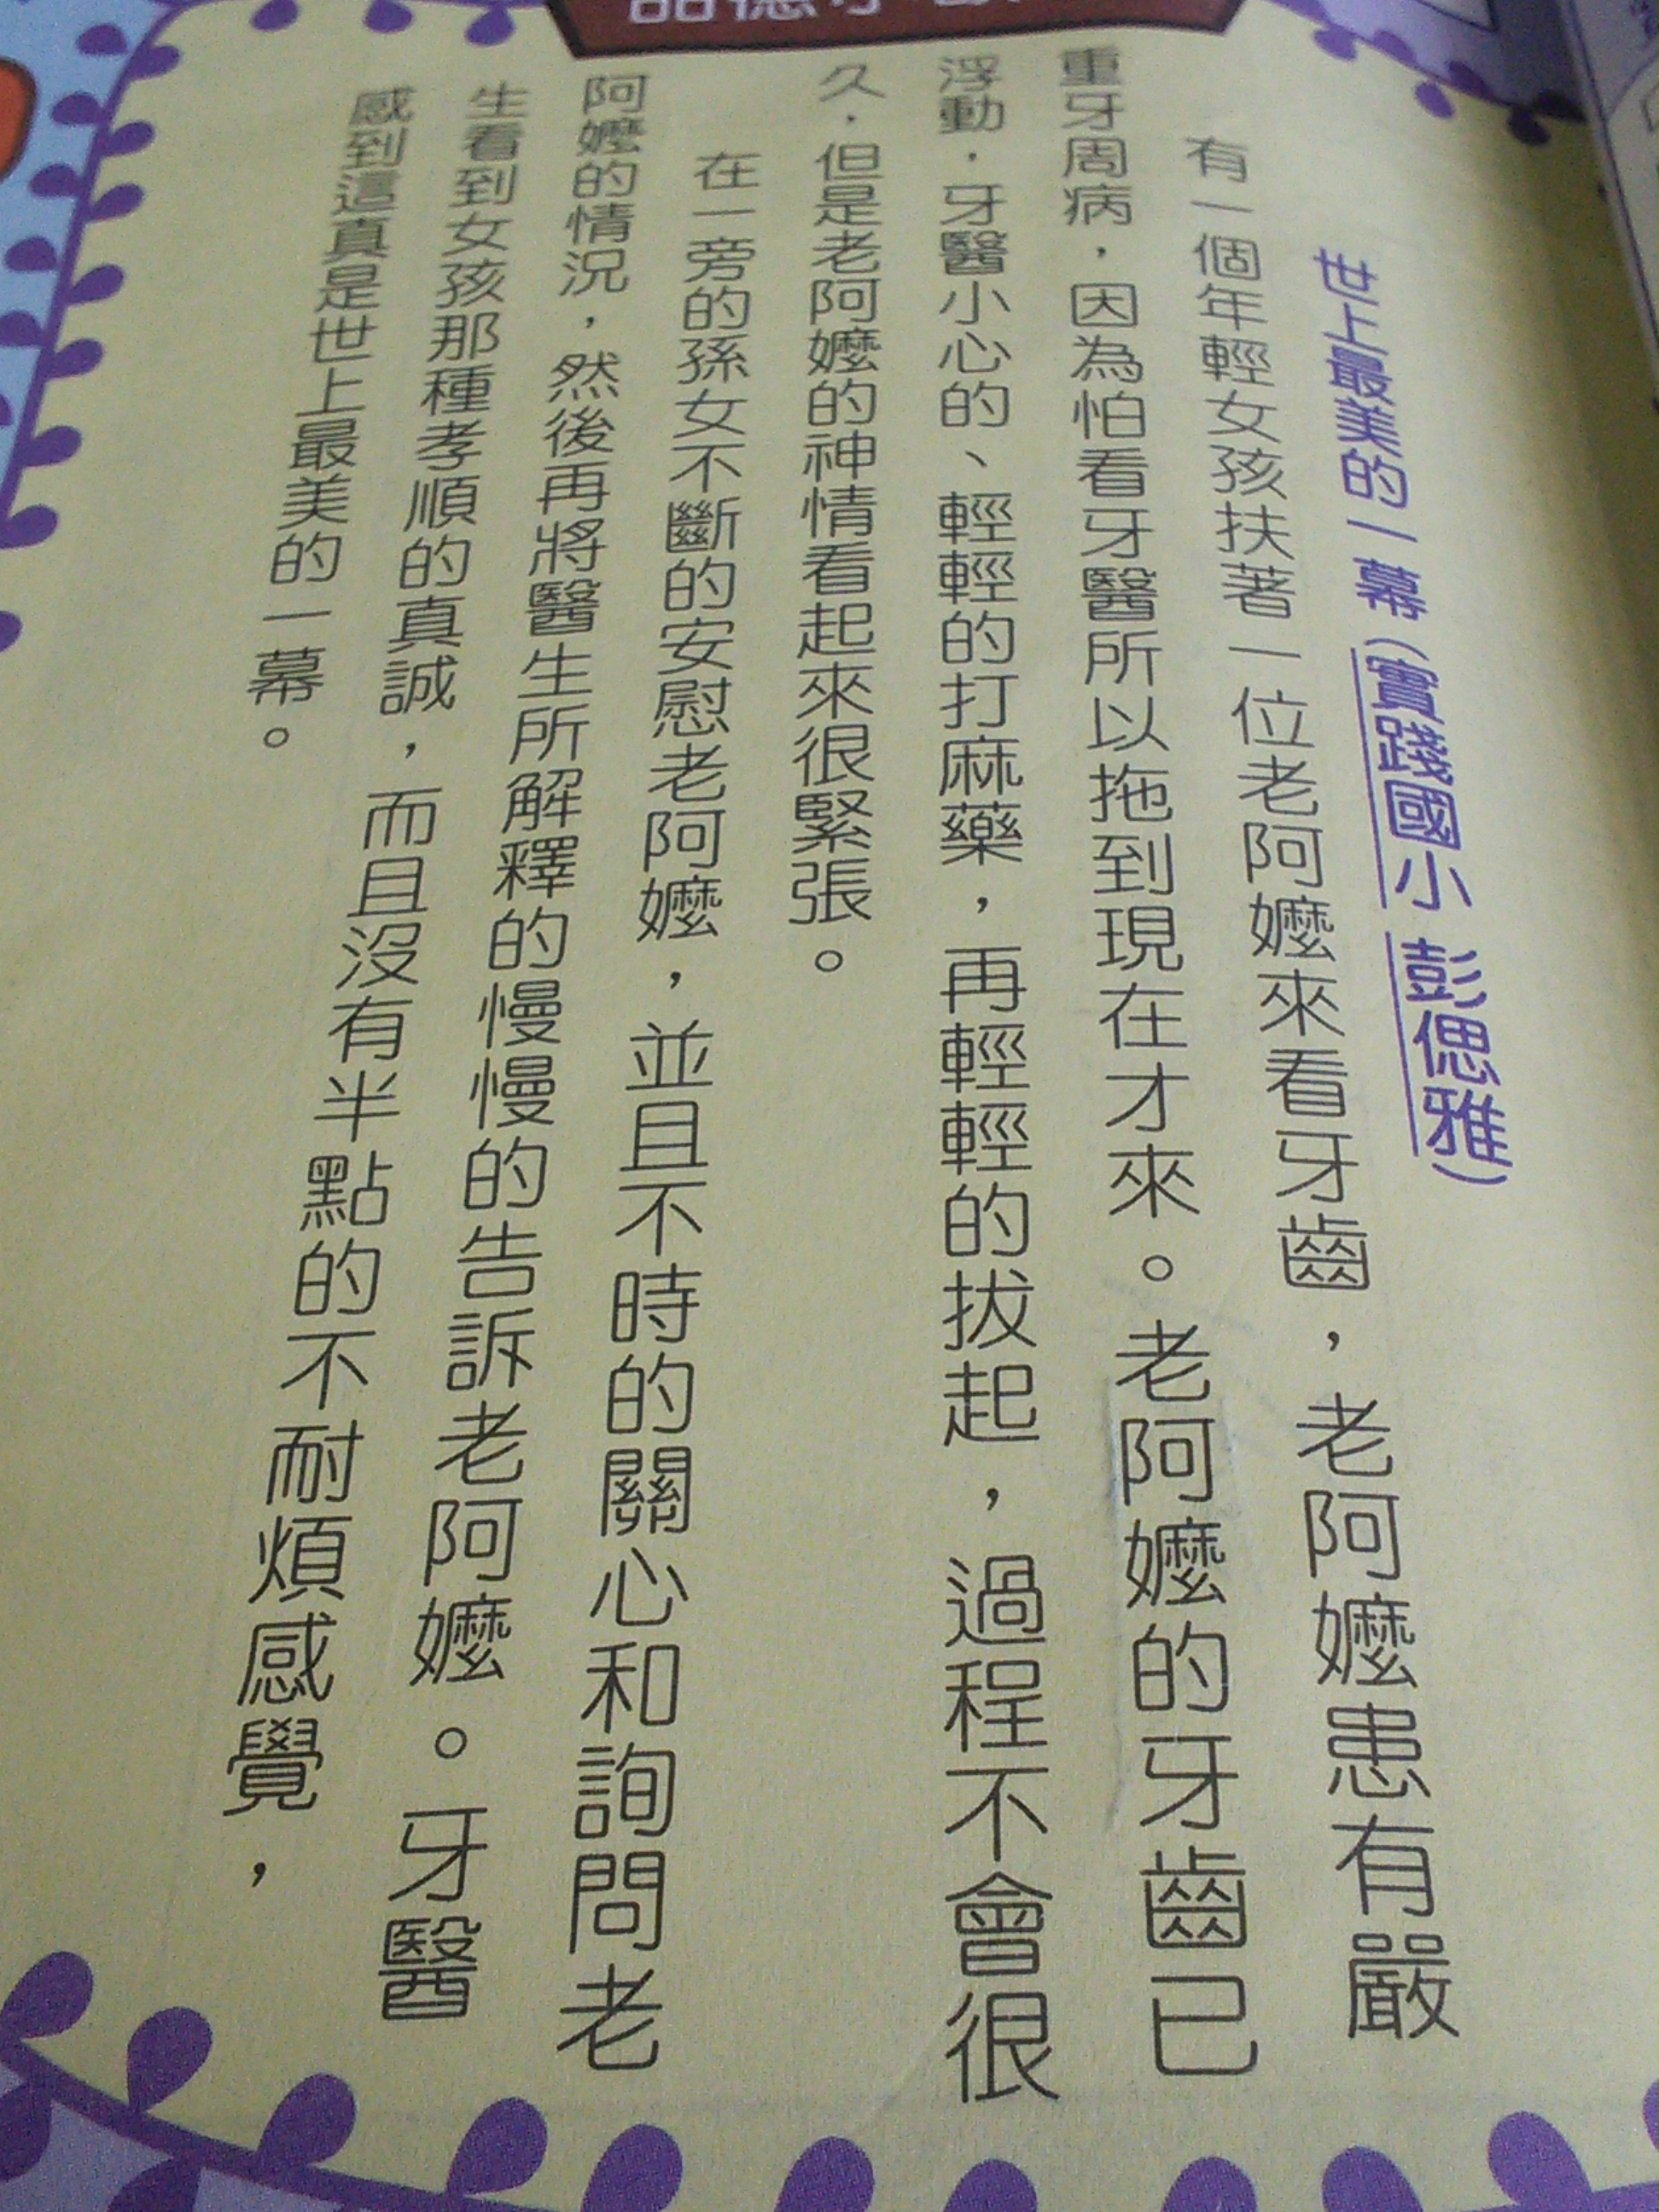 世上最美的一幕(實踐國小 彭偲雅)
有一個年輕女孩扶著一位老阿嬤來看牙齒，老阿嬤患有嚴
重牙周病，因為怕看牙醫所以拖到現在才來。老阿嬤的牙齒已
浮動，牙醫小心的、輕輕的打麻藥，再輕輕的拔起，過程不會很
久，但是老阿嬤的神情看起來很緊張。
在一旁的孫女不斷的安慰老阿嬤，並且不時的關心和詢問老
阿嬤的情況，然後再將醫生所解釋的慢慢的告訴老阿嬤。牙醫
生看到女孩那種孝順的真誠，而且沒有半點的不耐煩感覺，
感到這真是世上最美的一幕。